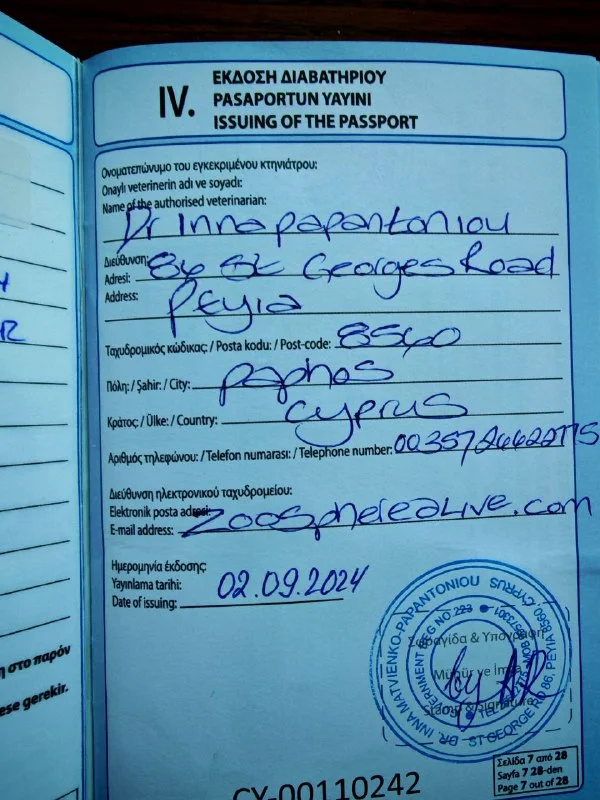 IV.
ΕΚΔΟΣΗ ΔΙΑΒΑΤΗΡΙΟΥ
PASAPORTUN YAYINI
ISSUING OF THE PASSPORT
Ονοματεπώνυμο του εγκεκριμένου κτηνιάτρου:
Onaylı veterinerin adı ve soyadı:
Name of the authorised veterinarian:
Dr Inna papantoniou
Διεύθυνση:
Adresi: 86 St Georges Road
Address: Peyia
Ταχυδρομικός κώδικας: / Posta kodu: / Post-code: 8560
Πόλη: / Şahir: / City: paphos
Κράτος: / Ülke: / Country: cyprus
Αριθμός τηλεφώνου: / Telefon numarası: / Telephone number: 0035726622775
Διεύθυνση ηλεκτρονικού ταχυδρομείου:
Elektronik posta adresi:
E-mail address: zoosphere@live.com
Ημερομηνία έκδοσης:
Yayınlama tarihi: 02.09.2024
Date of issuing:
Σφραγίδα & Υπογραφή
Mühür ve İmza
Stamp & Signature
DR. INNA MATVIENKO-PAPANTONIOU
ST GEORGE RD 86, PEYIA 8560, CYPRUS
GOVERNMENT REG NO 223
Σελίδα 7 από 28
Sayfa 7 28-den
Page 7 out of 28
CY-00110242
η στο παρόν
ese gerekir.